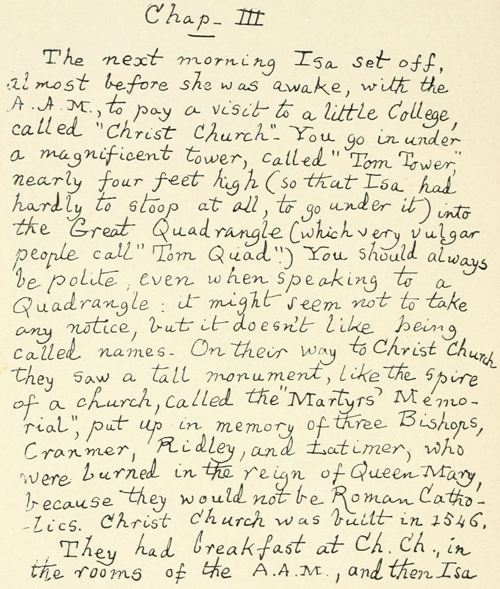 Chap- III
The next morning Isa set off,
almost before she was awake, with the
A.A.M., to pay a visit to a little College,
called "Christ Church"- You go in under
a magnificent tower, called "Tom Tower"
nearly four feet high (so that Isa had
hardly to stoop at all, to go under it) into
the Great Quadrangle (which very vulgar
people call "Tom Quad".) You should always
be polite, even when speaking to a
Quadrangle: it might seem not to take
any notice, but it doesn't like being
called names- On their way to Christ Church
they saw a tall monument, like the spire
of a church, called the "Martyrs' Memo-
rial", put up in memory of three Bishops,
Cranmer, Ridley, and Latimer, who
were burned in the reign of Queen Mary,
because they would not be Roman Catho-
-lics. Christ Church was built in 1546.
They had breakfast at Ch. Ch., in
the rooms of the A.A.M., and then Isa